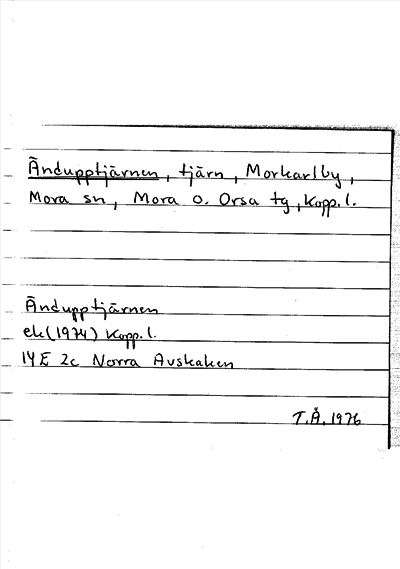 Ändupptjärnen, tjärn, Morkarlby,
Mora sn, Mora o. Orsa tg, Kopp. l.
Ändupptjärnen
ek (1974) Kopp. l.
14E 2c Norra Avskaken
T.Å. 1976